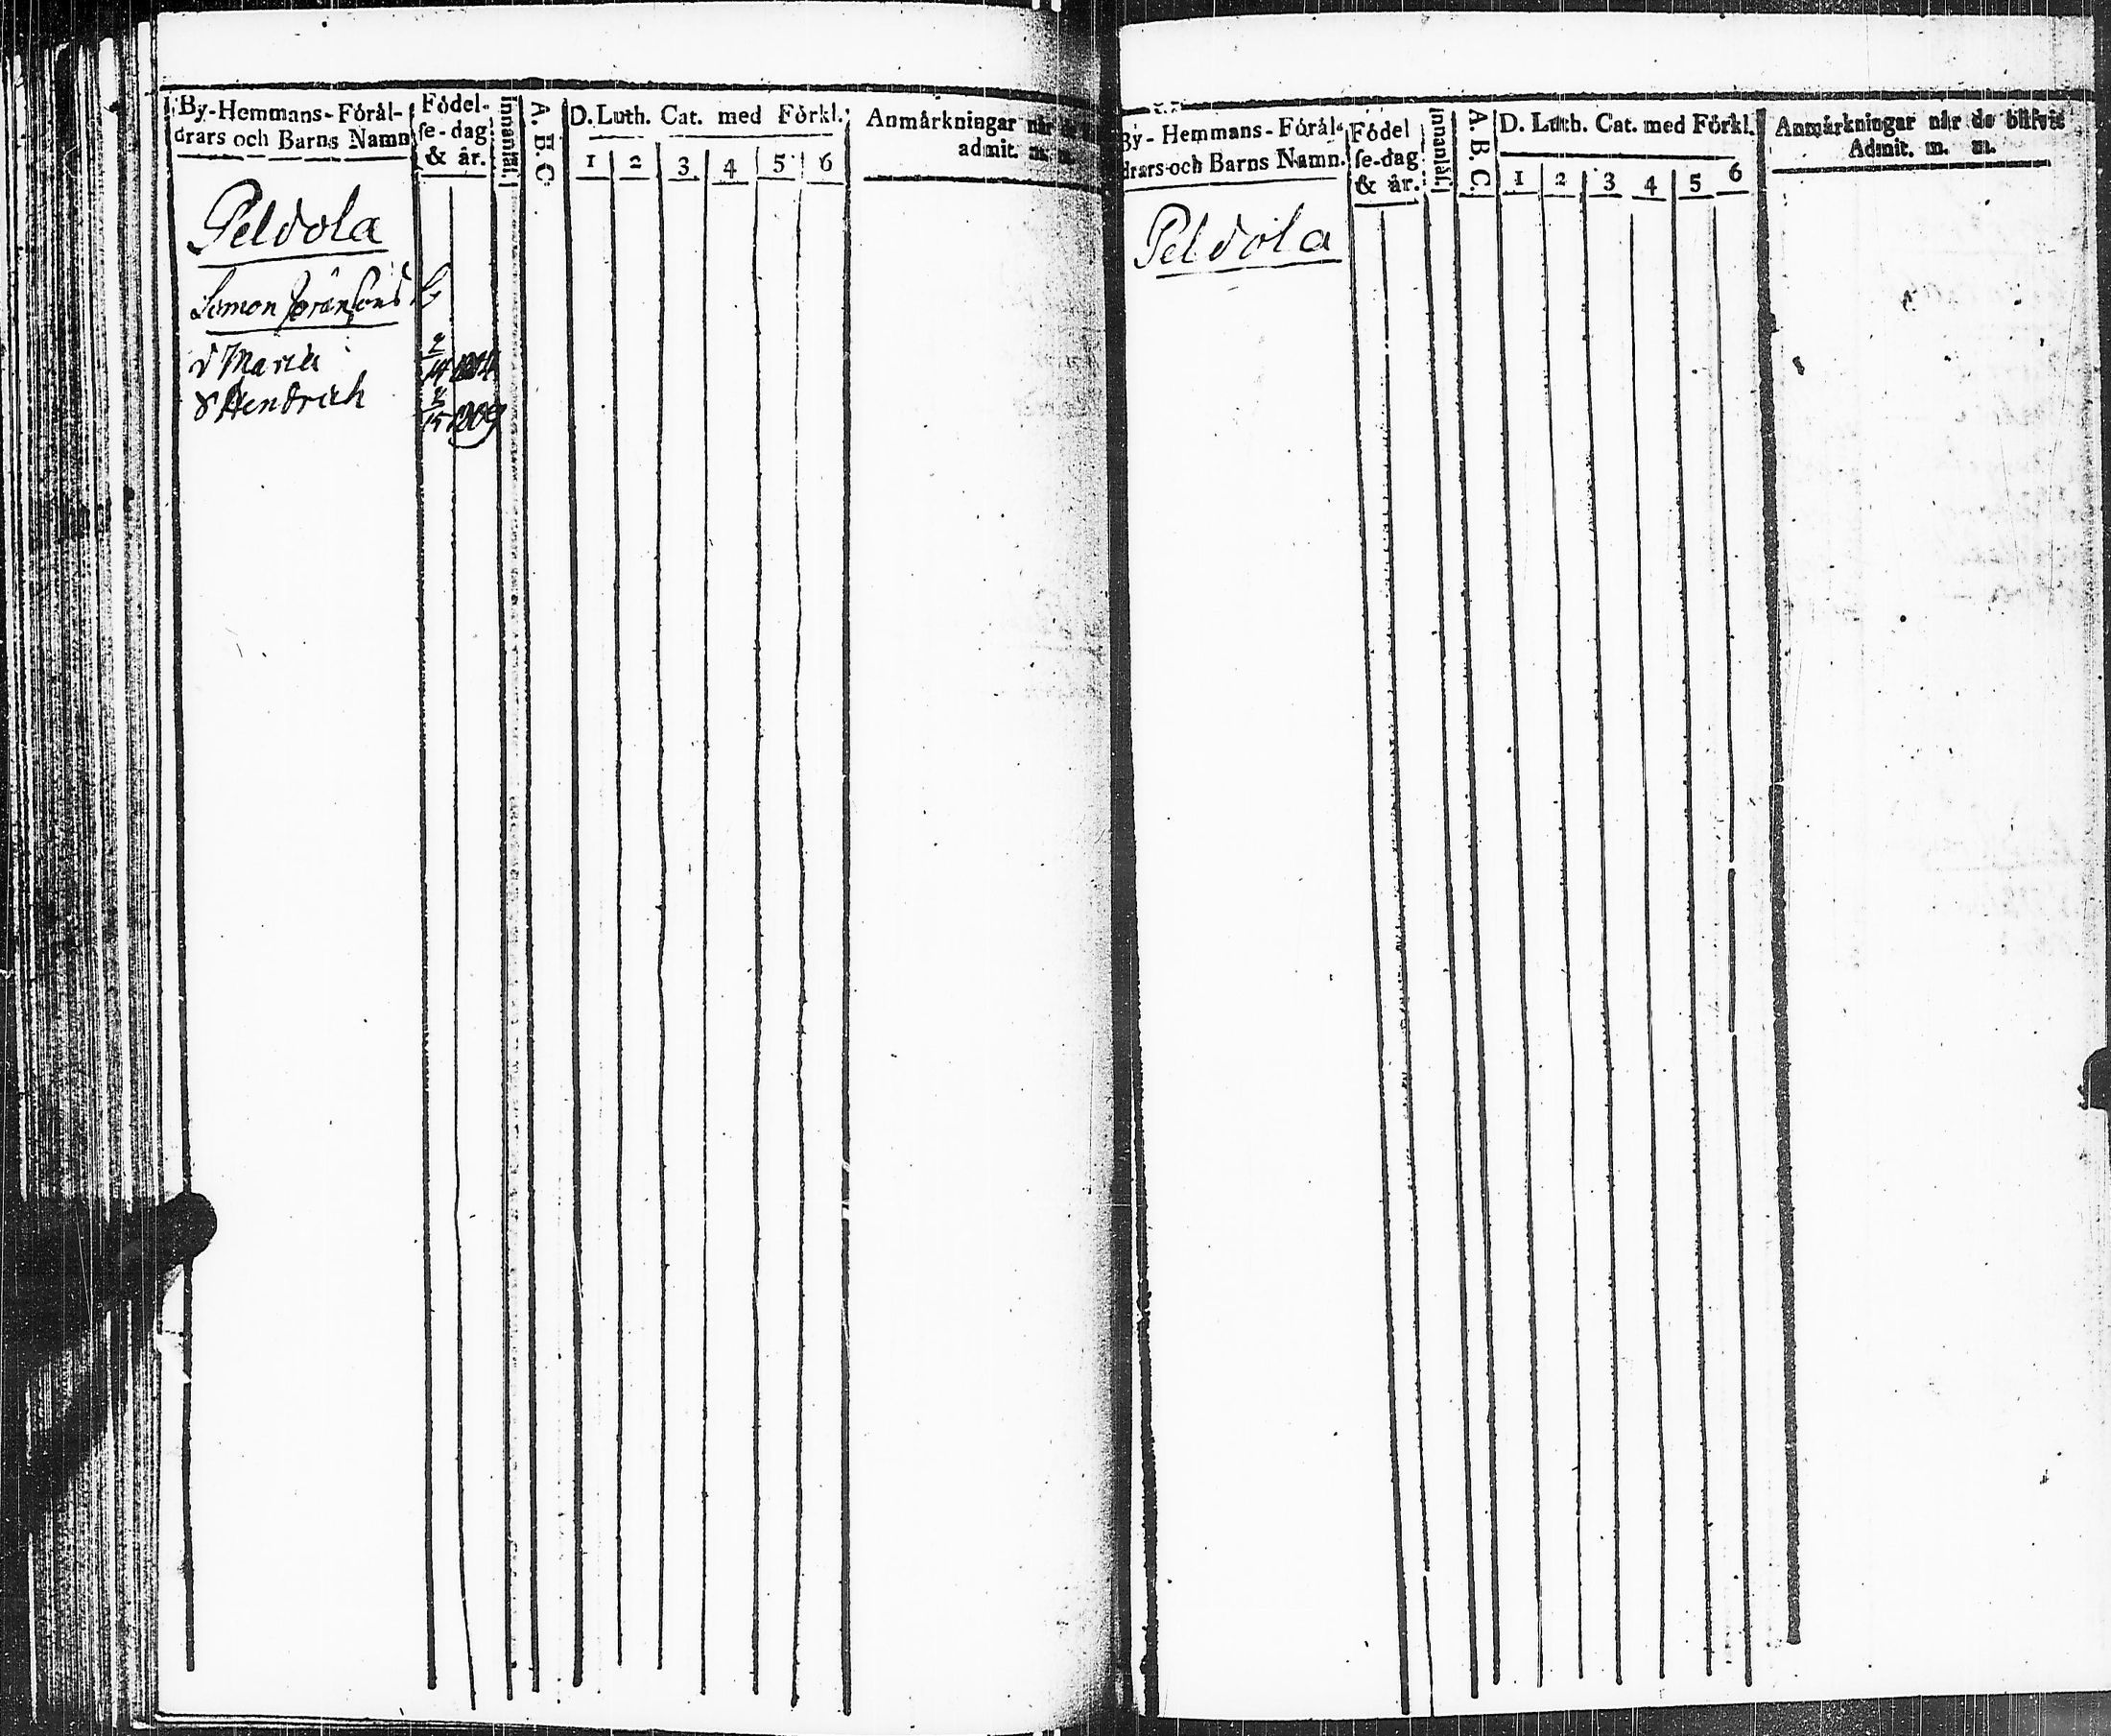 By-Hemmans-Förål-
drars och Barns Namn
Födel-
ſe-dag
& år.
Innanläſ.
A. B. C
D. Luth. Cat. med Förkl.
1 2 3 4 5 6
Anmårkningar när
admit. m.
Peldola
Simon Jöransons
d Maria
d Hendrich
15 1809
By-Hemmans-Förål-
drars och Barns Namn.
Födel
ſe-dag
& år.
Innanläſ.
A. B. C.
D. Luth. Cat. med Förkl.
1 2 3 4 5 6
Anmårkningar när de blifvit
Admit. m. m.
Peldola